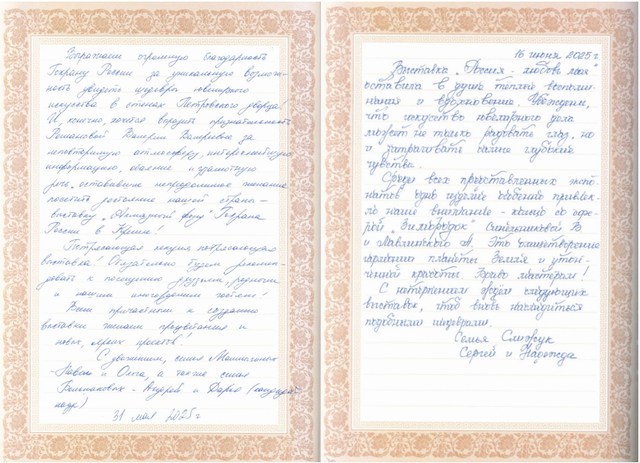 Выражаем огромную благодарность
Гохрану России за уникальную возмож-
ность увидеть шедевры ювелирного
искусства в стенах Петровского дворца!
И, конечно, хочется выразить признательность
Валерии Валерьевне за
неповторимую атмосферу, интереснейшую
информацию, обаяние и грамотную
речь, оставившие непреодолимое желание
посетить достояние нашей страны -
выставку „Алмазный фонд" Гохрана
России в Кремле!
Потрясающая лекция, потрясающая
выставка! Обязательно будем рекомен-
довать к посещению друзьям, родным
и нашим иногородним гостям!
Всем причастным к созданию
выставки желаем процветания и
новых, ярких проектов!
С уважением, семья
Павел и Ольга, а также семья
- Андрей и Дарья
31 мая 2025 г.
16 июня 2025 г.
Выставка „Россия, любовь моя"
оставила в душе тёплые воспоми-
нания и вдохновение. Убеждены,
что искусство ювелирного дела
может не только радовать глаз, но
и затрагивать самые глубокие
чувства.
Среди всех представленных экспо-
натов одно изделие особенно привлек-
ло наше внимание - кольцо со сфе-
рой „Зимородок" Синельниковой Ю
и Лавлинского А. Это олицетворение
гармонии планеты Земля и утон-
чённой красоты. Браво мастерам!
С нетерпением ждём следующих
выставок, чтоб вновь насладиться
подобными шедеврами.
Семья
Сергей и Надежда